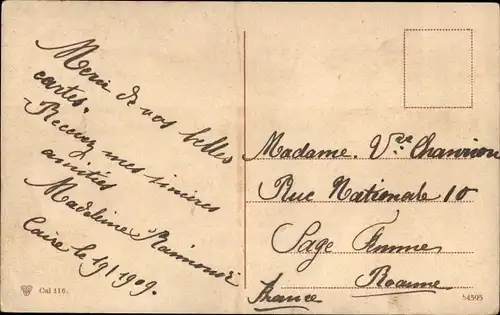 Merci de vos belles
cartes.
Recevez mes sincères
amitiés
Madeleine
Caire le 19/1 1909.
Madame. Vve
Rue Nationale 10
Sage Femme
Roanne
France
Cal 116.
54595